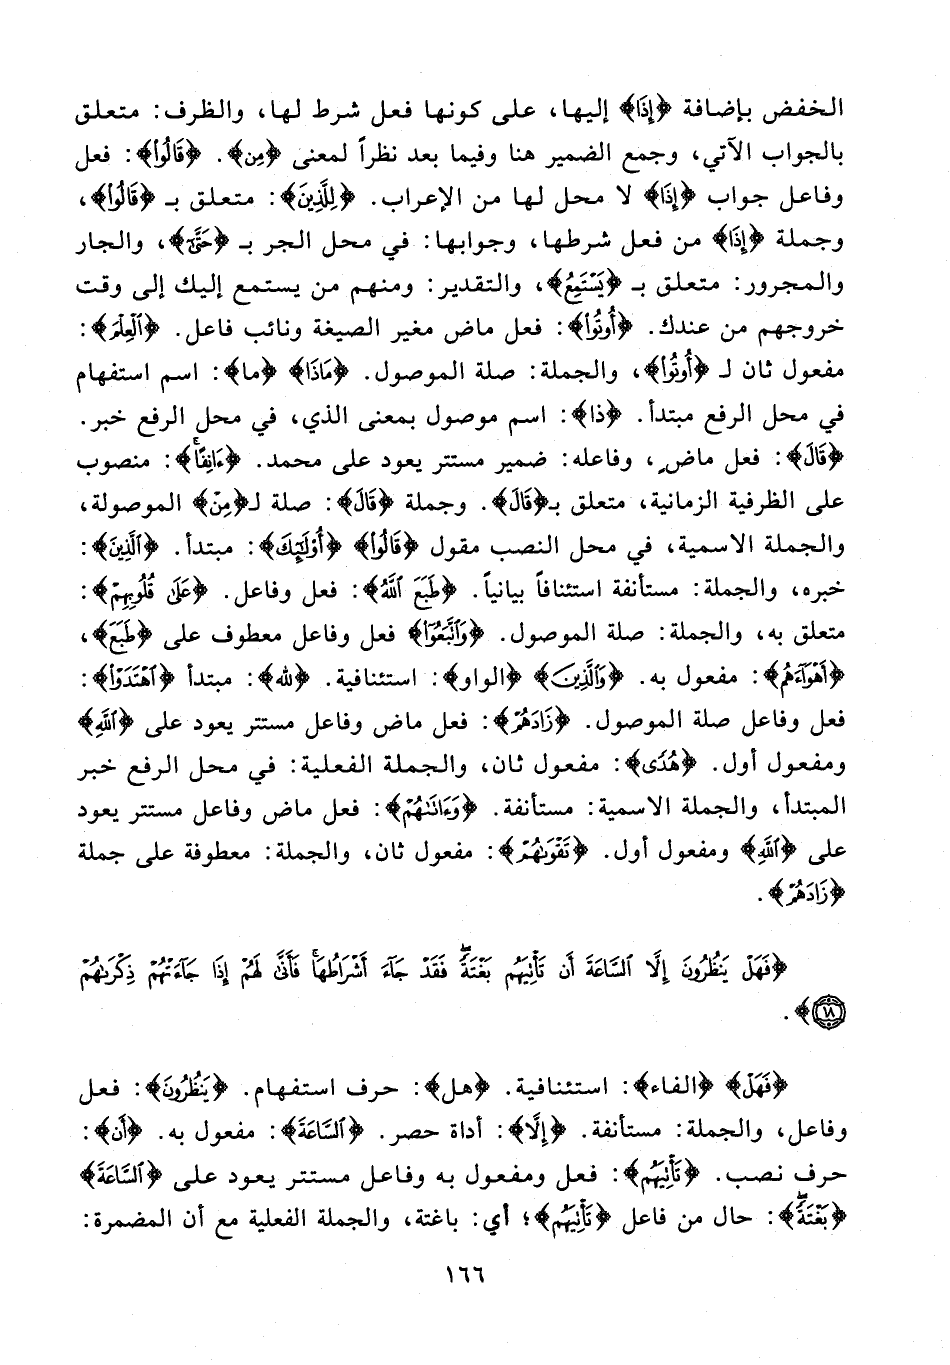 الخفض بإضافة ﴿إِذَا﴾ إليها، على كونها فعل شرط لها، والظرف: متعلق
بالجواب الآتي، وجمع الضمير هنا وفيما بعد نظراً لمعنى ﴿مِن﴾. ﴿قَالُوا﴾: فعل
وفاعل جواب ﴿إِذَا﴾ لا محل لها من الإعراب. ﴿لِلَّذِينَ﴾: متعلق بـ ﴿قَالُوا﴾،
وجملة ﴿إِذَا﴾ من فعل شرطها، وجوابها: في محل الجر بـ ﴿حَتَّىٰ﴾، والجار
والمجرور: متعلق بـ ﴿يَسْتَمِعُ﴾، والتقدير: ومنهم من يستمع إليك إلى وقت
خروجهم من عندك. ﴿أُوتُوا﴾: فعل ماض مغير الصيغة ونائب فاعل. ﴿ٱلْعِلْمَ﴾:
مفعول ثان لـ ﴿أُوتُوا﴾، والجملة: صلة الموصول. ﴿مَاذَا﴾ ﴿ما﴾: اسم استفهام
في محل الرفع مبتدأ. ﴿ذا﴾: اسم موصول بمعنى الذي، في محل الرفع خبر.
﴿قَالَ﴾: فعل ماضٍ، وفاعله: ضمير مستتر يعود على محمد. ﴿ءَانِفًاۚ﴾: منصوب
على الظرفية الزمانية، متعلق بـ﴿قَالَ﴾. وجملة ﴿قَالَ﴾: صلة لـ﴿مِنْ﴾ الموصولة،
والجملة الاسمية، في محل النصب مقول ﴿قَالُوا﴾ ﴿أُوْلَٰٓئِكَ﴾: مبتدأ. ﴿الَّذِينَ﴾:
خبره، والجملة: مستأنفة استئنافاً بيانياً. ﴿طَبَعَ ٱللَّهُ﴾: فعل وفاعل. ﴿عَلَىٰ قُلُوبِهِمْ﴾:
متعلق به، والجملة: صلة الموصول. ﴿وَٱتَّبَعُوٓا﴾ فعل وفاعل معطوف على ﴿طَبَعَ﴾،
﴿أَهْوَآءَهُمْ﴾: مفعول به. ﴿وَٱلَّذِينَ﴾ ﴿الواو﴾: استئنافية. ﴿لله﴾: مبتدأ ﴿ٱهْتَدَوْا﴾:
فعل وفاعل صلة الموصول. ﴿زَادَهُمْ﴾: فعل ماض وفاعل مستتر يعود على ﴿ٱللَّهِ﴾
ومفعول أول. ﴿هُدًى﴾: مفعول ثان، والجملة الفعلية: في محل الرفع خبر
المبتدأ، والجملة الاسمية: مستأنفة. ﴿وَءَاتَىٰهُمْ﴾: فعل ماض وفاعل مستتر يعود
على ﴿ٱللَّهِ﴾ ومفعول أول. ﴿تَقْوَىٰهُمْ﴾: مفعول ثان، والجملة: معطوفة على جملة
﴿زَادَهُمْ﴾.
﴿فَهَلْ يَنظُرُونَ إِلَّا ٱلسَّاعَةَ أَن تَأْتِيَهُم بَغْتَةًۖ فَقَدْ جَآءَ أَشْرَاطُهَاۚ فَأَنَّىٰ لَهُمْ إِذَا جَآءَتْهُمْ ذِكْرَىٰهُمْ
١٨﴾.
﴿فَهَلْ﴾ ﴿الفاء﴾: استئنافية. ﴿هل﴾: حرف استفهام. ﴿يَنظُرُونَ﴾: فعل
وفاعل، والجملة: مستأنفة. ﴿إِلَّا﴾: أداة حصر. ﴿ٱلسَّاعَةَ﴾: مفعول به. ﴿أَن﴾:
حرف نصب. ﴿تَأْتِيَهُم﴾: فعل ومفعول به وفاعل مستتر يعود على ﴿ٱلسَّاعَةَ﴾
﴿بَغْتَةًۖ﴾: حال من فاعل ﴿تَأْتِيَهُم﴾؛ أي: باغتة، والجملة الفعلية مع أن المضمرة:
١٦٦